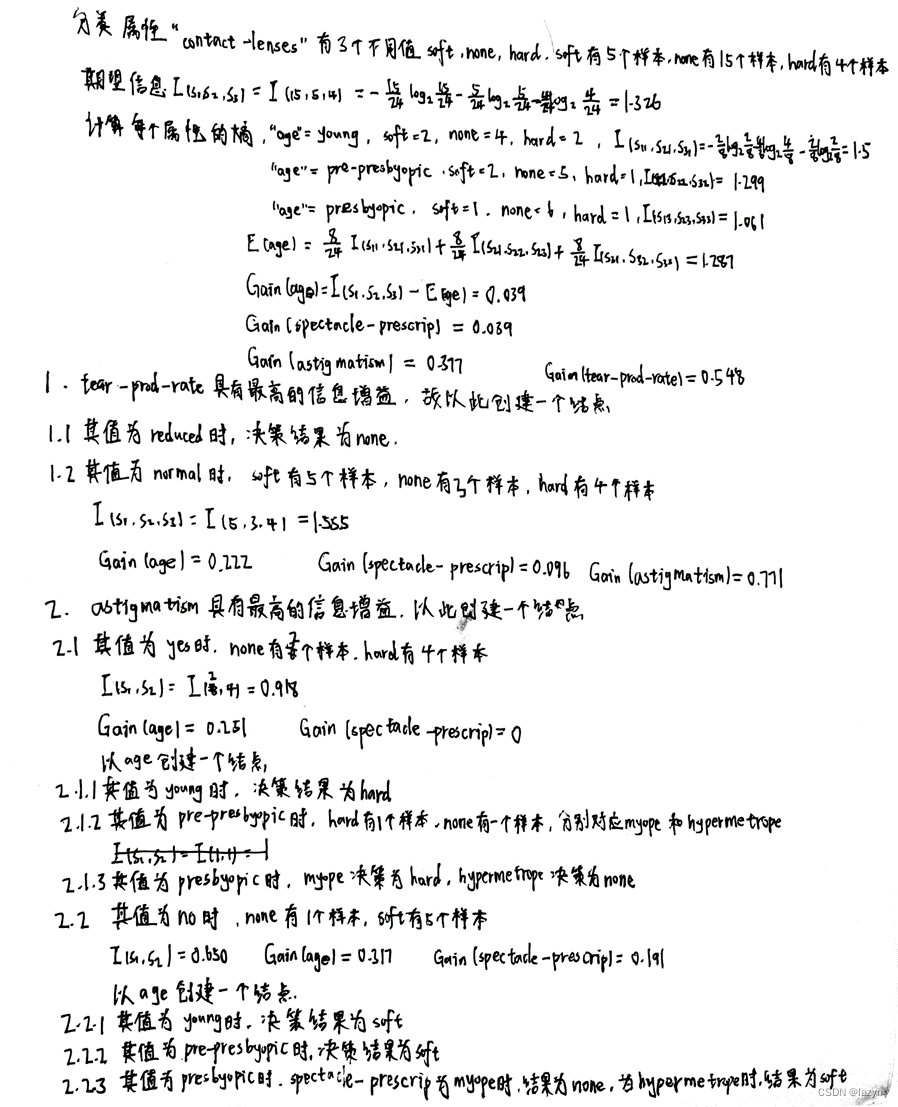 分类属性"contact-lenses"有3个不同值 soft, none, hard. soft有5个样本, none有15个样本, hard有4个样本
期望信息 I(S1,S2,S3) = I(15,5,4) = -15/24 log2 15/24 - 5/24 log2 5/24 - 4/24 log2 4/24 = 1.326
计算每个属性的熵, "age"= young, soft=2, none=4, hard=2, I(S11,S21,S31)=-2/8 log2 2/8 - 4/8 log2 4/8 - 2/8 log2 2/8 = 1.5
"age"= pre-presbyopic. soft=2, none=5, hard=1, I(S12,S22,S32)= 1.299
"age"= presbyopic. soft=1. none=6, hard=1, I(S13,S23,S33)= 1.061
E(age) = 8/24 I(S11,S21,S31) + 8/24 I(S21,S22,S23) + 8/24 I(S31,S32,S33) = 1.287
Gain(age)=I(S1,S2,S3) - E(age) = 0.039
Gain(spectacle-prescrip) = 0.039
Gain(astigmatism) = 0.377 Gain(tear-prod-rate)=0.548
1. tear-prod-rate具有最高的信息增益, 故以此创建一个结点.
1.1 其值为reduced时, 决策结果为none.
1.2 其值为 normal时, soft有5个样本, none有3个样本, hard有4个样本
I(S1,S2,S3)= I(5,3,4) = 1.555
Gain(age)=0.222 Gain(spectacle-prescrip)=0.096 Gain(astigmatism)=0.771
2. astigmatism具有最高的信息增益, 以此创建一个结点.
2.1 其值为 yes时, none有2个样本. hard有4个样本
I(S1,S2)= I(2,4)=0.918
Gain(age)= 0.251 Gain(spectacle-prescrip)=0
以age创建一个结点,
2.1.1其值为young时, 决策结果为hard
2.1.2其值为 pre-presbyopic时, hard有1个样本, none有一个样本, 分别对应myope 和 hypermetrope
I(S1,S2)=I(1,1)=1
2.1.3其值为presbyopic时, myope决策为hard, hypermetrope决策为none
2.2 其值为no时, none有1个样本, soft有5个样本
I(S1,S2)=0.650 Gain(age)=0.317 Gain(spectacle-prescrip)=0.191
以age创建一个结点.
2.2.1 其值为 young时, 决策结果为soft
2.2.2 其值为pre-presbyopic时, 决策结果为soft
2.2.3 其值为presbyopic时. spectacle-prescrip为myope时, 结果为none, 为hypermetrope时, 结果为soft
CSDN @lazyn